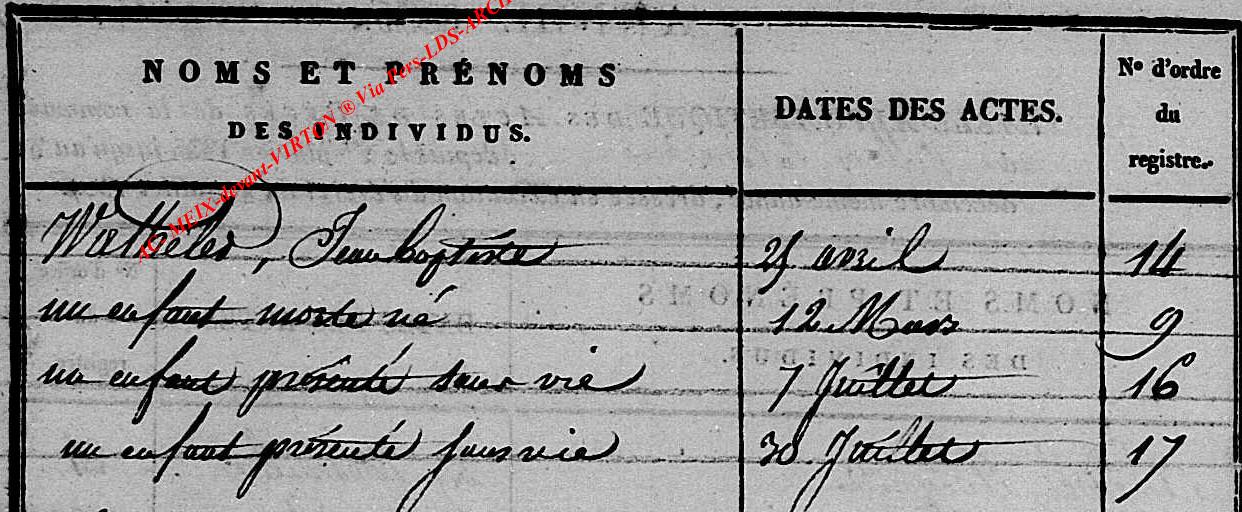 NOMS ET PRÉNOMS
DES INDIVIDUS.
DATES DES ACTES.
Nº d'ordre
du
registre.
AC MEIX-devant-VIRTON ® Via Pers-LDS-ARCH
Wathelet, Jean baptiste 25 avril 14
un enfant morte né 12 Mars 9
un enfant présenté sans vie 7 Juillet 16
un enfant présenté sans vie 30 Juillet 17